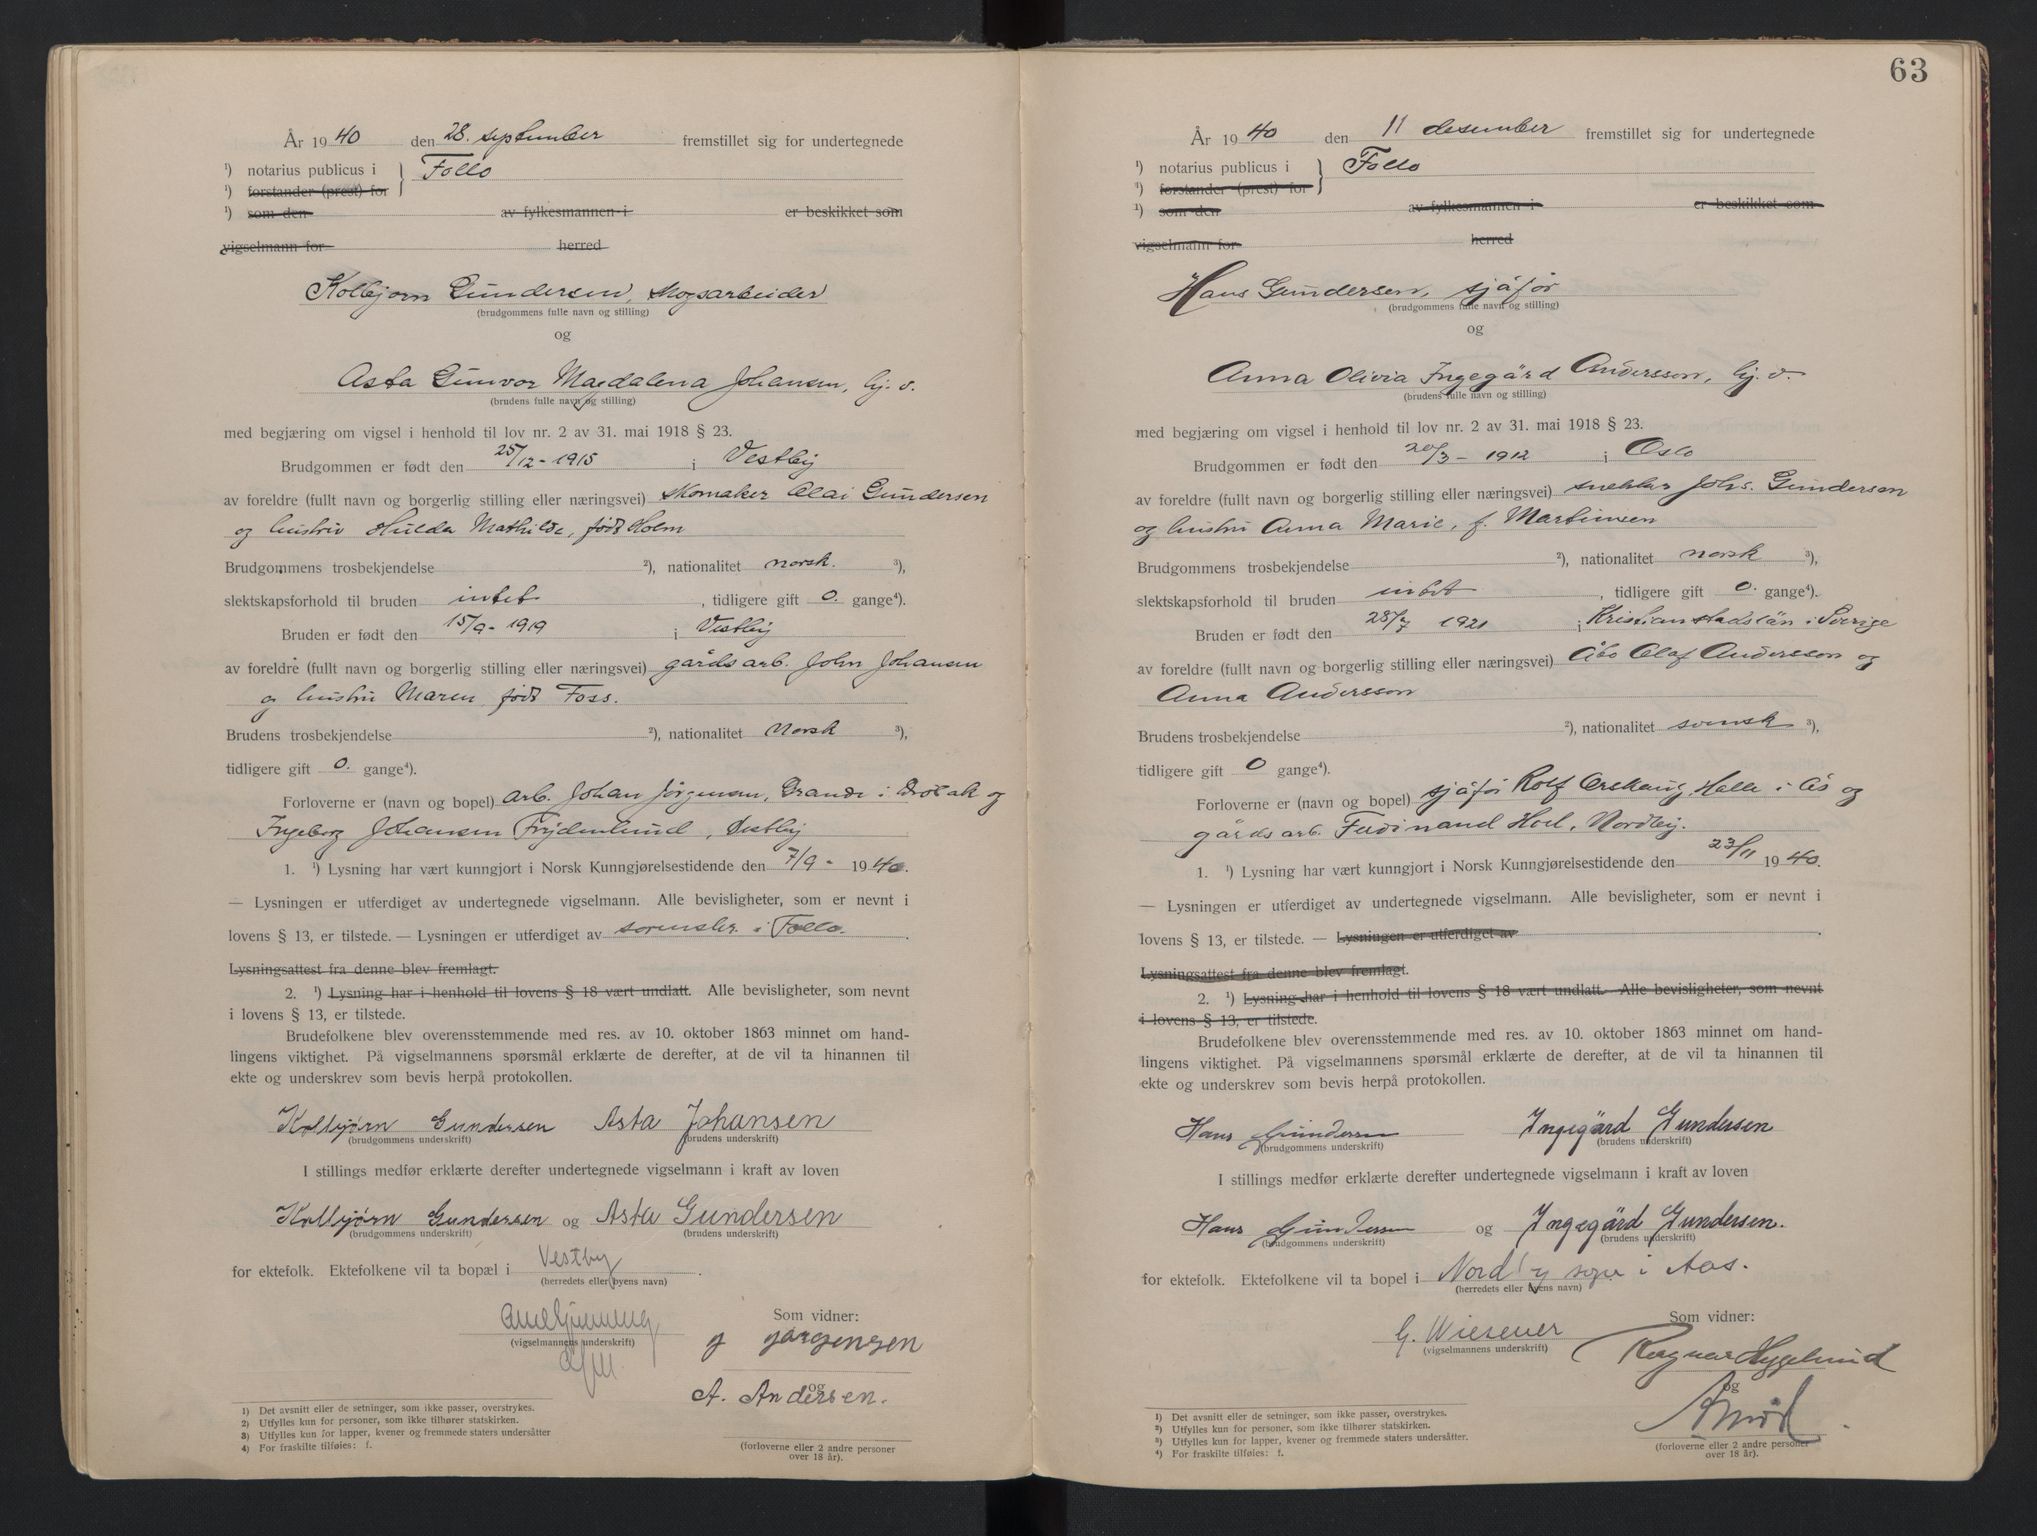 År 1940 den 28. september fremstillet sig for undertegnede
¹) notarius publicus i } Follo
¹) forstander (prest) for
¹) som den av fylkesmannen i er beskikket som
vigselmann for herred
Kolbjørn Gundersen, skogsarbeider
(brudgommens fulle navn og stilling)
og
Asta Gunvor Magdalena Johansen, hj. v.
(brudens fulle navn og stilling)
med begjæring om vigsel i henhold til lov nr. 2 av 31. mai 1918 § 23.
Brudgommen er født den 25/12 - 1915 i Vestby
av foreldre (fullt navn og borgerlig stilling eller næringsvei) skomaker Olai Gundersen
og hustru Hulda Mathilde, født Holm
Brudgommens trosbekjendelse ²), nationalitet norsk. ³),
slektskapsforhold til bruden intet, tidligere gift 0. gange⁴).
Bruden er født den 15/9 - 1919 i Vestby
av foreldre (fullt navn og borgerlig stilling eller næringsvei) gårdsarb. John Johansen
og hustru Maren, født Foss.
Brudens trosbekjendelse ²), nationalitet norsk ³),
tidligere gift 0. gange⁴).
Forloverne er (navn og bopel) arb. Johan Jørgensen, Grande i Drøbak og
Ingeborg Johansen Frydenlund, Vestby
1. ¹) Lysning har vært kunngjort i Norsk Kunngjørelsestidende den 7/9 - 1940.
— Lysningen er utferdiget av undertegnede vigselmann. Alle bevisligheter, som er nevnt i
lovens § 13, er tilstede. — Lysningen er utferdiget av sorenskr. i Follo.
Lysningsattest fra denne blev fremlagt.
2. ¹) Lysning har i henhold til lovens § 18 vært undlatt. Alle bevisligheter, som nevnt
i lovens § 13, er tilstede.
Brudefolkene blev overensstemmende med res. av 10. oktober 1863 minnet om hand-
lingens viktighet. På vigselmannens spørsmål erklærte de derefter, at de vil ta hinannen til
ekte og underskrev som bevis herpå protokollen.
Kolbjørn Gundersen Asta Johansen
(brudgommens underskrift) (brudens underskrift)
I stillings medfør erklærte derefter undertegnede vigselmann i kraft av loven
Kolbjørn Gundersen og Asta Gundersen
(brudgommens underskrift) (brudens underskrift)
for ektefolk. Ektefolkene vil ta bopæl i Vestby.
(herredets eller byens navn)
Som vidner:
(vigselmannens underskrift)
J Jørgensen
og
A. Andersen.
1) Det avsnitt eller de setninger, som ikke passer, overstrykes.
2) Utfylles kun for personer, som ikke tilhører statskirken.
3) Utfylles kun for lapper, kvener og fremmede staters undersåtter
4) For fraskilte tilføies: f.
(forloverne eller 2 andre personer
over 18 år).
63
År 1940 den 11 desember fremstillet sig for undertegnede
¹) notarius publicus i } Follo
¹) forstander (prest) for
¹) som den av fylkesmannen i er beskikket som
vigselmann for herred
Hans Gundersen, sjåfør
(brudgommens fulle navn og stilling)
og
Anna Olivia Ingegärd Andersson, hj. v.
(brudens fulle navn og stilling)
med begjæring om vigsel i henhold til lov nr. 2 av 31. mai 1918 § 23.
Brudgommen er født den 20/3 - 1912 i Oslo
av foreldre (fullt navn og borgerlig stilling eller næringsvei) snekker Johs. Gundersen
og hustru Anna Marie, f. Martinsen
Brudgommens trosbekjendelse ²), nationalitet norsk ³),
slektskapsforhold til bruden intet, tidligere gift 0. gange⁴).
Bruden er født den 28/7 1921 i Kristianstadslän i Sverige
av foreldre (fullt navn og borgerlig stilling eller næringsvei) Åbo Olaf Andersson og
Anna Andersson
Brudens trosbekjendelse ²), nationalitet svensk ³),
tidligere gift 0 gange⁴).
Forloverne er (navn og bopel) sjåfør Rolf Orskaug, Holle i Ås og
gårdsarb. Ferdinand Hoel, Nordby.
1. ¹) Lysning har vært kunngjort i Norsk Kunngjørelsestidende den 23/11 1940.
— Lysningen er utferdiget av undertegnede vigselmann. Alle bevisligheter, som er nevnt i
lovens § 13, er tilstede. — Lysningen er utferdiget av.
Lysningsattest fra denne blev fremlagt.
2. ¹) Lysning har i henhold til lovens § 18 vært undlatt. Alle bevisligheter, som nevnt
i lovens § 13, er tilstede.
Brudefolkene blev overensstemmende med res. av 10. oktober 1863 minnet om hand-
lingens viktighet. På vigselmannens spørsmål erklærte de derefter, at de vil ta hinannen til
ekte og underskrev som bevis herpå protokollen.
Hans Gundersen Ingegärd Gundersen
(brudgommens underskrift) (brudens underskrift)
I stillings medfør erklærte derefter undertegnede vigselmann i kraft av loven
Hans Gundersen og Ingegärd Gundersen.
(brudgommens underskrift) (brudens underskrift)
for ektefolk. Ektefolkene vil ta bopel i Nordby sogn i Aas.
(herredets eller byens navn)
Som vidner:
G. Wiesener
(vigselmannens underskrift)
Ragnar Hyggelund
og
1) Det avsnitt eller de setninger, som ikke passer, overstrykes.
2) Utfylles kun for personer, som ikke tilhører statskirken.
3) Utfylles kun for lapper, kvener og fremmede staters undersåtter.
4) For fraskilte tilføies: f.
(forloverne eller 2 andre personer
over 18 år).